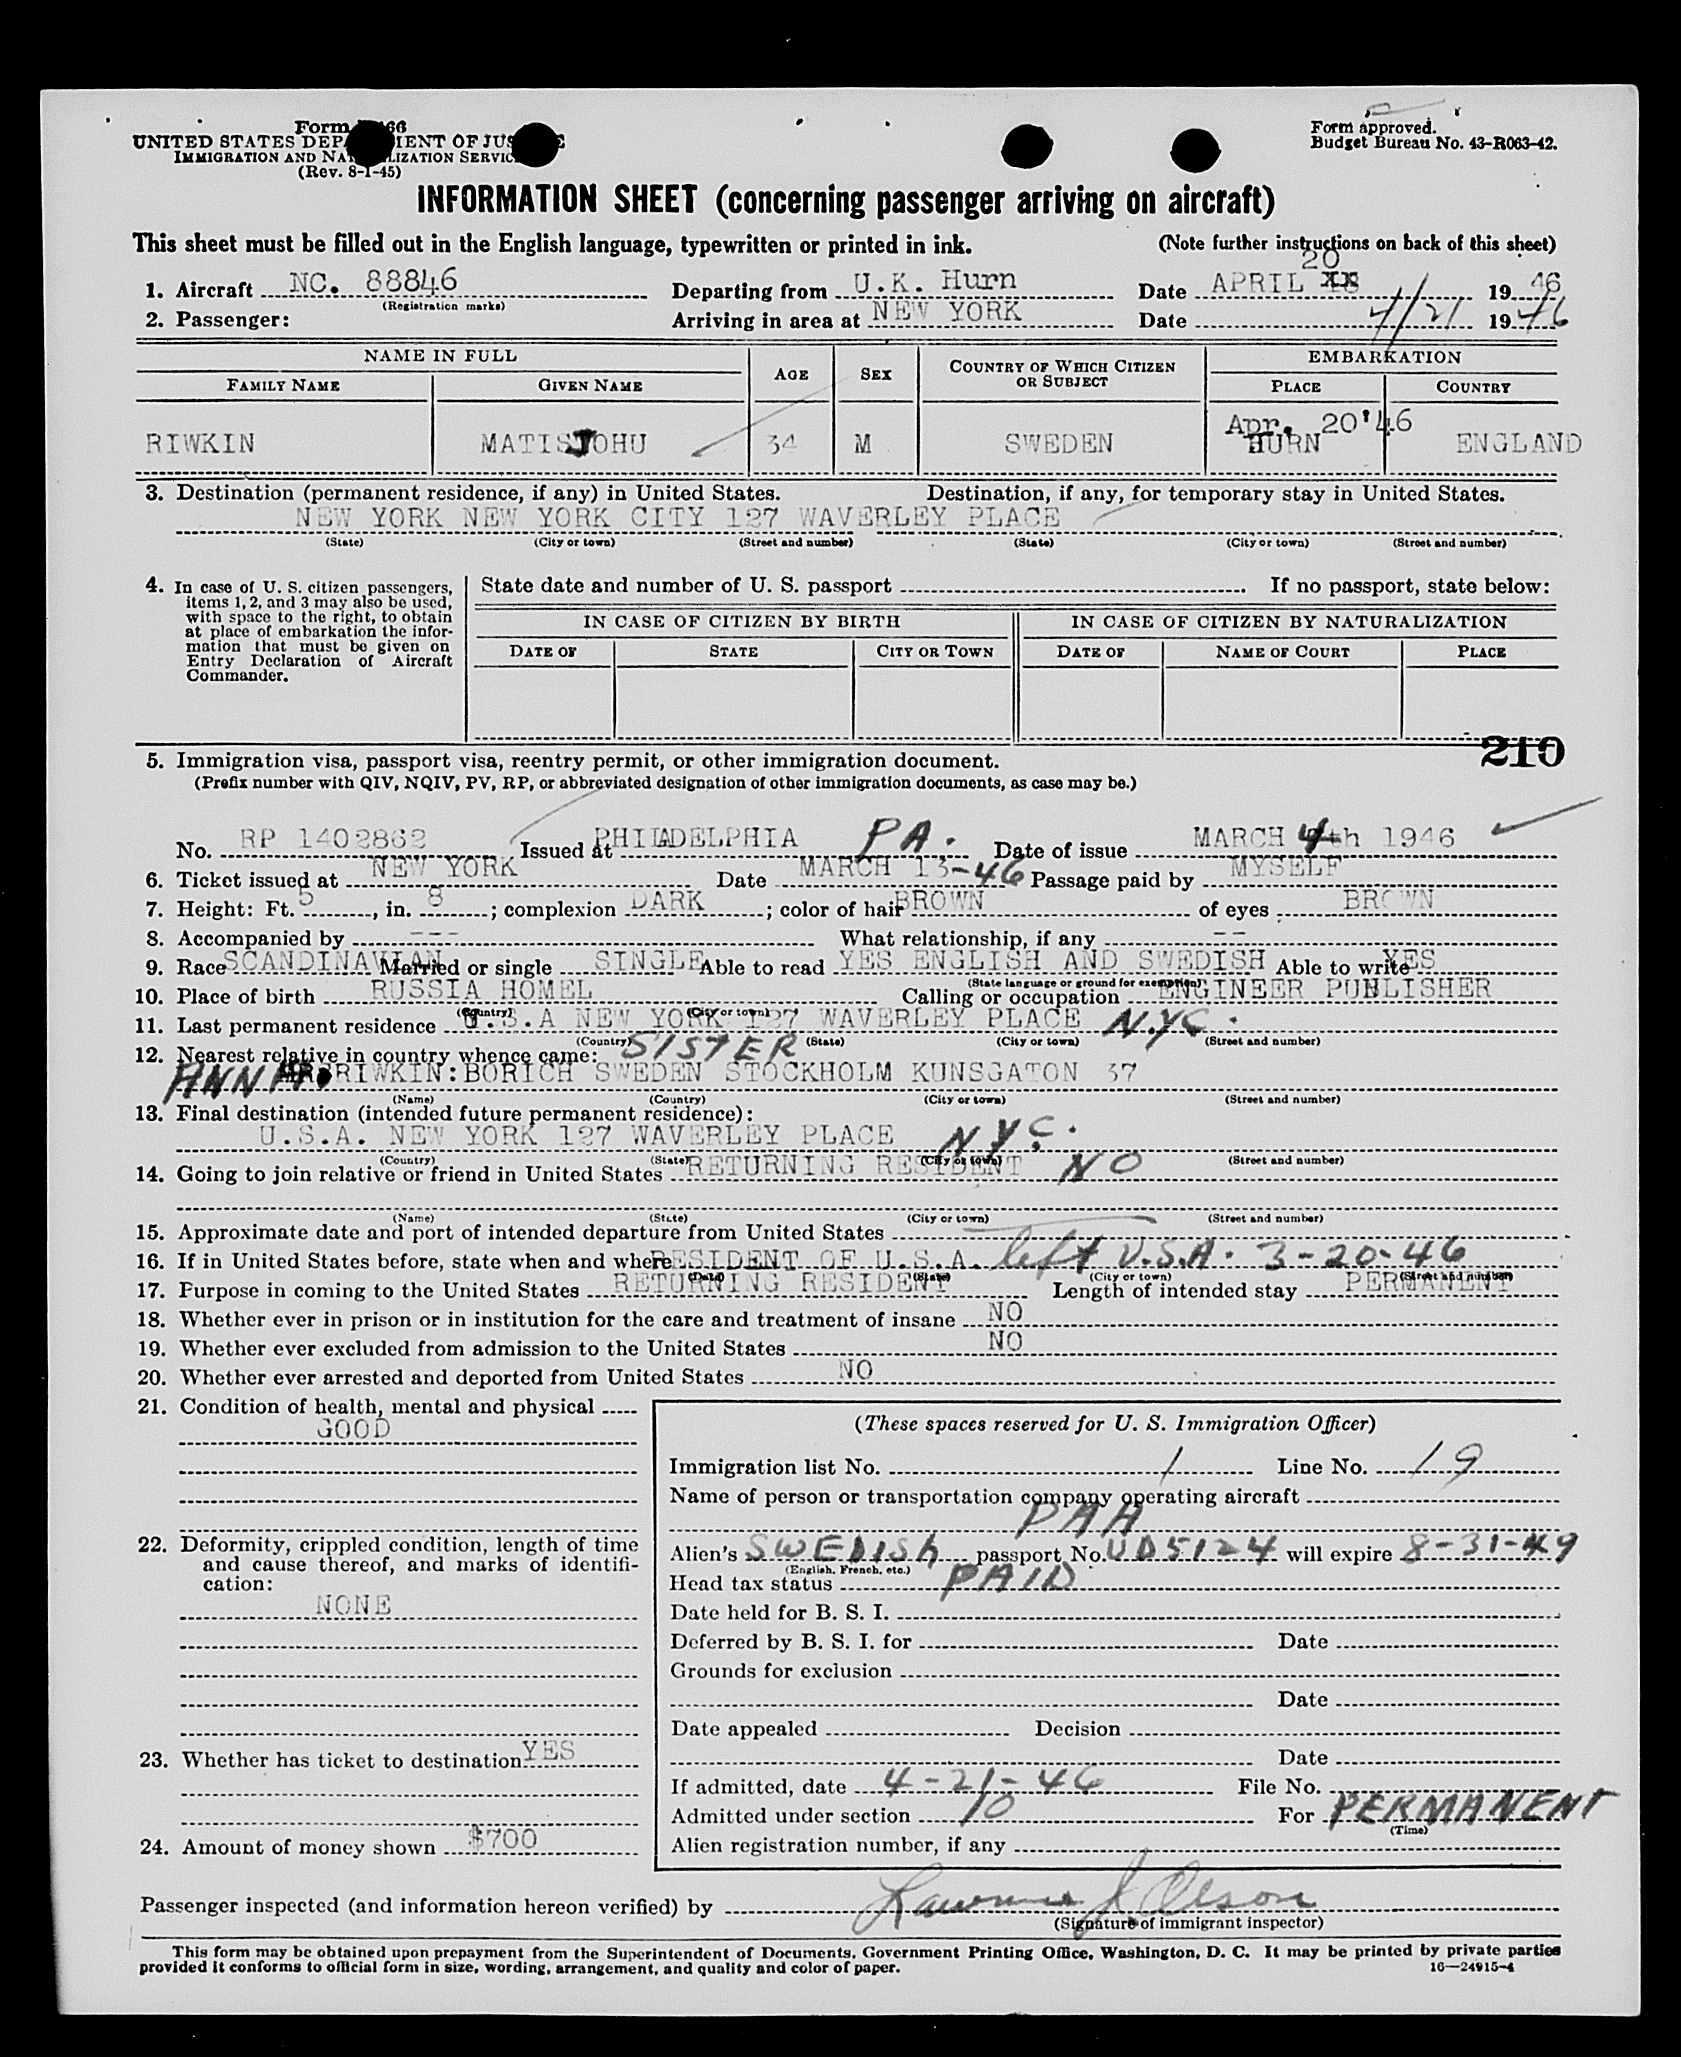 Form 66
UNITED STATES DEP MENT OF JUS E
IMMIGRATION AND NA LIZATION SERVIC
(Rev. 8-1-45)
Form approved.
Budget Bureau No. 43-R063-42.
INFORMATION SHEET (concerning passenger arriving on aircraft)
This sheet must be filled out in the English language, typewritten or printed in ink. (Note further instructions on back of this sheet)
20
1. Aircraft NC. 88846 Departing from U.K. Hurn Date APRIL 1946
(Registration marks)
2. Passenger: Arriving in area at NEW YORK Date 4/21 1946
NAME IN FULL AGE SEX COUNTRY OF WHICH CITIZEN OR SUBJECT EMBARKATION
FAMILY NAME GIVEN NAME PLACE COUNTRY
Apr. 20'46
RIWKIN MATISJOHU 34 M SWEDEN HURN ENGLAND
3. Destination (permanent residence, if any) in United States. Destination, if any, for temporary stay in United States.
NEW YORK NEW YORK CITY 127 WAVERLEY PLACE
(State) (City or town) (Street and number) (State) (City or town) (Street and number)
4. In case of U. S. citizen passengers,
items 1, 2, and 3 may also be used,
with space to the right, to obtain
at place of embarkation the infor-
mation that must be given on
Entry Declaration of Aircraft
Commander.
State date and number of U. S. passport If no passport, state below:
IN CASE OF CITIZEN BY BIRTH IN CASE OF CITIZEN BY NATURALIZATION
DATE OF STATE CITY OR TOWN DATE OF NAME OF COURT PLACE
210
5. Immigration visa, passport visa, reentry permit, or other immigration document.
(Prefix number with QIV, NQIV, PV, RP, or abbreviated designation of other immigration documents, as case may be.)
No. RP 1402862 Issued at PHILADELPHIA PA. Date of issue MARCH 4th 1946
6. Ticket issued at NEW YORK Date MARCH 13-46 Passage paid by MYSELF
7. Height: Ft. 5, in. 8; complexion DARK; color of hair BROWN of eyes BROWN
8. Accompanied by --- What relationship, if any --
9. Race SCANDINAVIAN Married or single SINGLE Able to read YES ENGLISH AND SWEDISH Able to write YES
(State language or ground for exemption)
10. Place of birth RUSSIA HOMEL Calling or occupation ENGINEER PUBLISHER
(Country) (City or town)
11. Last permanent residence U.S.A NEW YORK 127 WAVERLEY PLACE N.Y.C.
(Country) (State) (City or town) (Street and number)
12. Nearest relative in country whence came: SISTER
ANNA RIWKIN:BORICH SWEDEN STOCKHOLM KUNSGATON 37
(Name) (Country) (City or town) (Street and number)
13. Final destination (intended future permanent residence):
U.S.A. NEW YORK 127 WAVERLEY PLACE N.Y.C.
(Country) (State) (City or town) (Street and number)
14. Going to join relative or friend in United States RETURNING RESIDENT NO
(Name) (State) (City or town) (Street and number)
15. Approximate date and port of intended departure from United States
16. If in United States before, state when and where RESIDENT OF U.S.A. left U.S.A. 3-20-46
(Date) (State) (City or town) (Street and number)
17. Purpose in coming to the United States RETURNING RESIDENT Length of intended stay PERMANENT
18. Whether ever in prison or in institution for the care and treatment of insane NO
19. Whether ever excluded from admission to the United States NO
20. Whether ever arrested and deported from United States NO
21. Condition of health, mental and physical
GOOD
22. Deformity, crippled condition, length of time
and cause thereof, and marks of identifi-
cation:
NONE
23. Whether has ticket to destination YES
24. Amount of money shown $700
(These spaces reserved for U. S. Immigration Officer)
Immigration list No. 1 Line No. 19
Name of person or transportation company operating aircraft
PAA
Alien's SWEDISH passport No. UD5124 will expire 8-31-49
(English, French, etc.)
Head tax status PAID
Date held for B. S. I.
Deferred by B. S. I. for Date
Grounds for exclusion
Date
Date appealed Decision
Date
If admitted, date 4-21-46 File No.
Admitted under section 10 For PERMANENT
(Time)
Alien registration number, if any
Passenger inspected (and information hereon verified) by Lawrence J. Olson
(Signature of immigrant inspector)
This form may be obtained upon prepayment from the Superintendent of Documents, Government Printing Office, Washington, D. C. It may be printed by private parties
provided it conforms to official form in size, wording, arrangement, and quality and color of paper. 16—24915-4